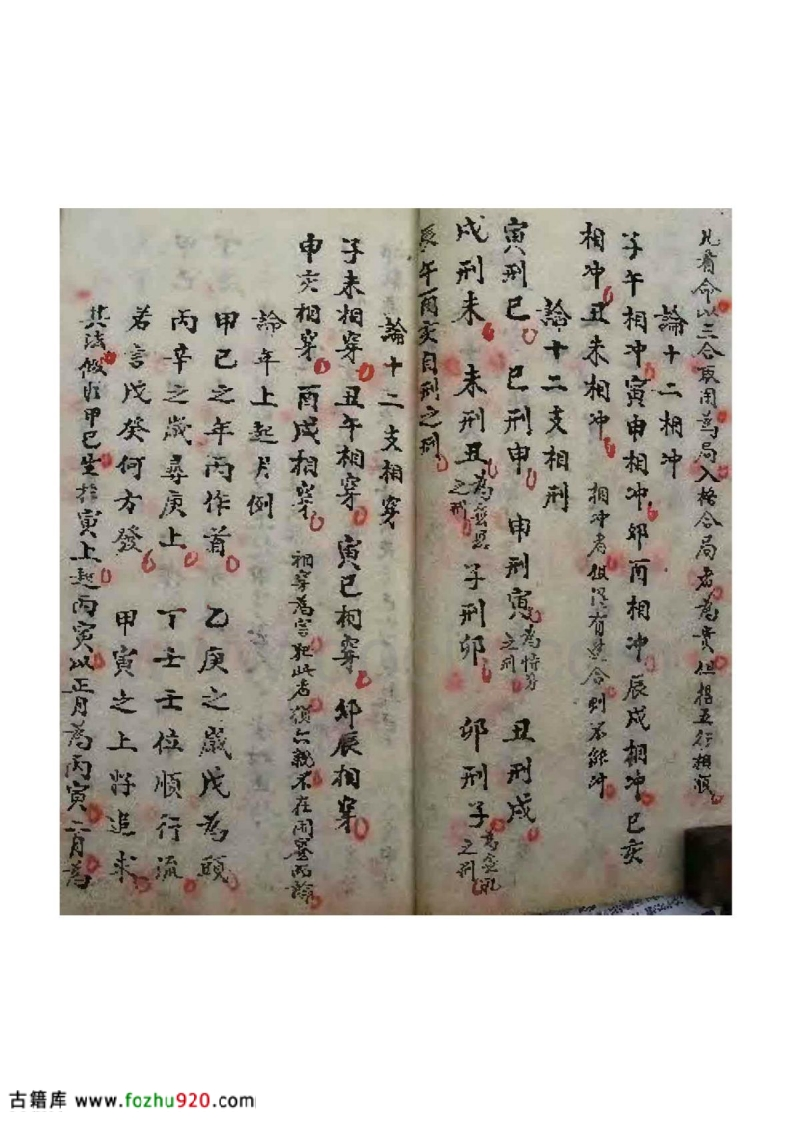 凡看命以三合取用爲局入格合局者爲貴但揚五行相順
論十二相冲
子午相冲寅申相冲卯酉相冲辰戌相冲巳亥
相冲丑未相冲 相冲者但有合則不能冲
論十二支相刑
寅刑巳 巳刑申 申刑寅爲恃势之刑 丑刑戌
戌刑未 未刑丑爲無恩之刑 子刑卯 卯刑子爲無礼之刑
辰午酉亥自刑之刑
論十二支相穿
子未相穿 丑午相穿 寅巳相穿 卯辰相穿
申亥相穿 酉戌相穿 相穿爲害犯此者損六親不在
論年上起月例
甲己之年丙作首 乙庚之歲戊為頭
丙辛之歲尋庚上 丁壬壬位順行流
若言戊癸何方發 甲寅之上好追求
其法假如甲己生於寅上起丙寅以正月為丙寅二月為
古籍库 www.fozhu920.com